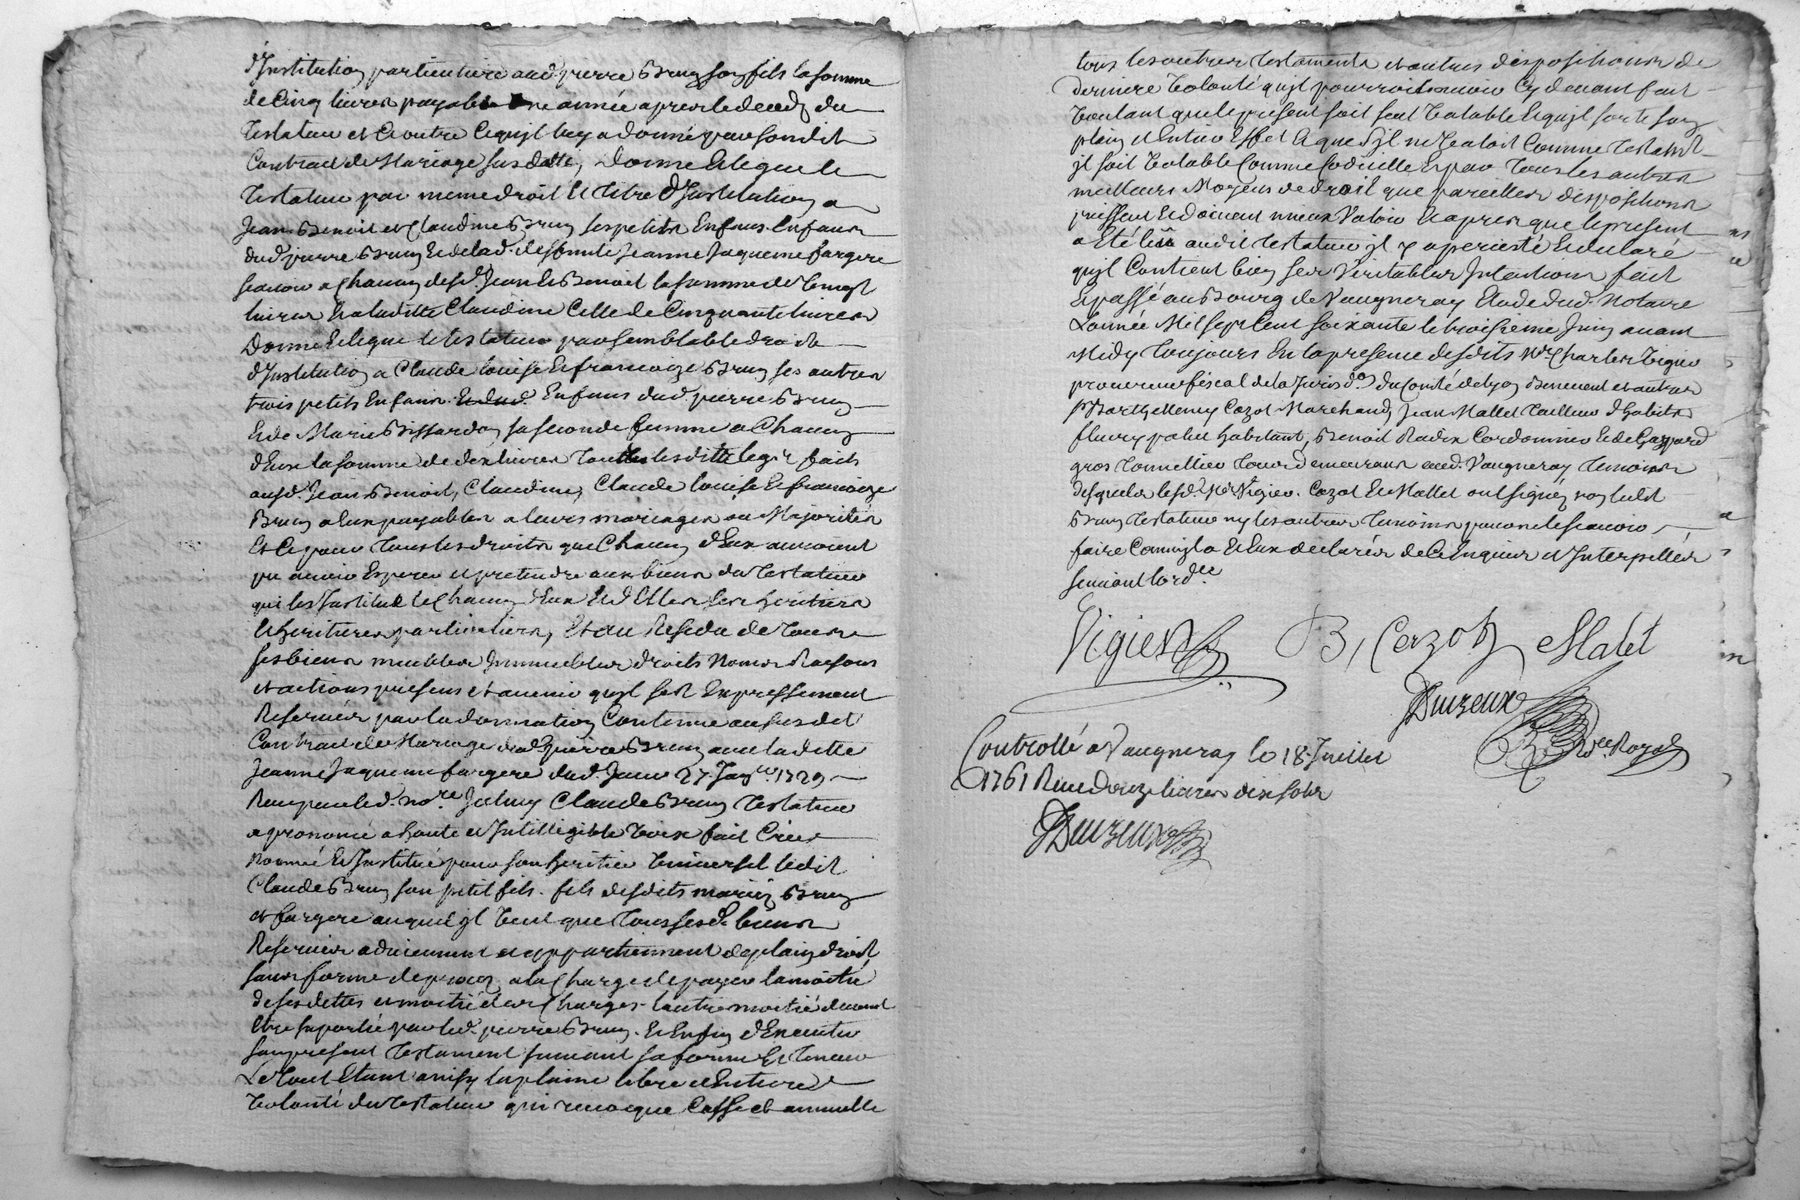 d'Institution particuliere aud. pierre Brun son fils la somme
de Cinq livres payable Une année apres le deceds du
Testateur et Ce outre Ce qu'jl luy a donné par son dit
Contract de Mariage susdatte, Donne Et legue le
Testateur par meme droit Et titre d'Institution a
Jean Benoit et Claudine Brun ses petits Enfans Enfans
dud. pierre Brun Et de lad. deffunte Jeanne Jaqueme fargere
scavoir a Chacun desd. Jean Et Benoit la somme de Vingt
livres Et a laditte Claudine Celle de Cinquante livres
Donne Et legue le testateur par semblable droit
d'Institution a Claude louise Et francoize Brun ses autres
trois petits Enfans Enfans dud. pierre Brun
Et de Marie Bissardon sa seconde femme a Chacun
d'Eux la somme de dix livres Tous lesdits legs faits
ausd. Jean Benoit, Claudine, Claude louise Et francoize
Brun a Eux payables a leurs mariages ou Majorités
Et Ce pour Tous les droits que Chacun d'Eux auroient
pu avoir Esperer et pretendre aux biens du Testateur
qui les Institue Chacun d'Eux Et d'Elles ses heritiers
Et heritieres particuliers, Et au Residu de Tous
ses biens meubles Jmmeubles droits Noms Raisons
et actions presens et avenir qu'jl sest Expressement
Reservés par la donnation Contenue au susdit
Contract de Mariage dud. pierre Brun avec laditte
Jeanne Jaqueme fargere dud. Jour 27. Janv.er 1729
Receu par led. no.re Jceluy Claude Brun Testateur
a prononcé a haute et Intelligible Voix fait Créé
Nommé Et Institué pour son heritier Universel ledit
Claude Brun son petit fils. fils desdits mariés Brun
et fargere auquel jl Veut que Tous sesd. biens
Reservés adviennent et appartiennent de plain droit,
sans forme de proces, a la Charge de payer la moitié
de ses dettes et moitié des Charges l'autre moitié devant
Etre suportée par led. pierre Brun. Et Enfin d'Executer
son present Testament suivant sa forme Et Teneur
Le Tout Etant ainsy la plaine libre et Entiere
Volonté du Testateur qui revoque Casse et annulle
tous les autres testaments et autres dispositions de
derniere Volonté qu'jl pourroit avoir Cy devant fait
Voulant que le present soit seul Valable Et qu'jl sorte son
plein et Entier Effet Et que s'jl ne Valoit Comme Testam.t
jl soit Valable Comme Codicille Et par Tous les autres
meilleurs Moyens de droit que pareilles dispositions
puissent Et doivent mieux Valoir Et apres que le present
a Eté lû audit Testateur jl y a persisté Et declaré
qu'jl Contient bien ses Veritables Intentions fait
Et passé au Bourg de Vaugneray Etude dud. Notaire
L'année Mil sept Cent soixante le troisieme Juin avant
Midy Toujours En la presence desdits M.e Charles Vigier
procureur fiscal de la Jurisd.on du Comté de lyon Benevent et autres
s.r Barthellemy Cazot Marchand, Jean Mallet Tailleur d'habits
fleury habitant, Benoit Radix Cordonnier Et de Gaspard
gros Tonnellier Tous demeurans aud. Vaugneray Temoins
desquels lesd. M.e Vigier. Cazot Et Mallet ont signés non ledit
Brun testateur ny les autres Temoins pour ne le scavoir
faire Comm'jl a Et Eux declarés de Ce Enquis et Interpellés
suivant l'ord.ce
Vigier B, Cazot Malet
Duizeux
No.re Royal
Controllé a Vaugneray le 18. Juillet
1761 Receu douze livres dix sols
Duizeux